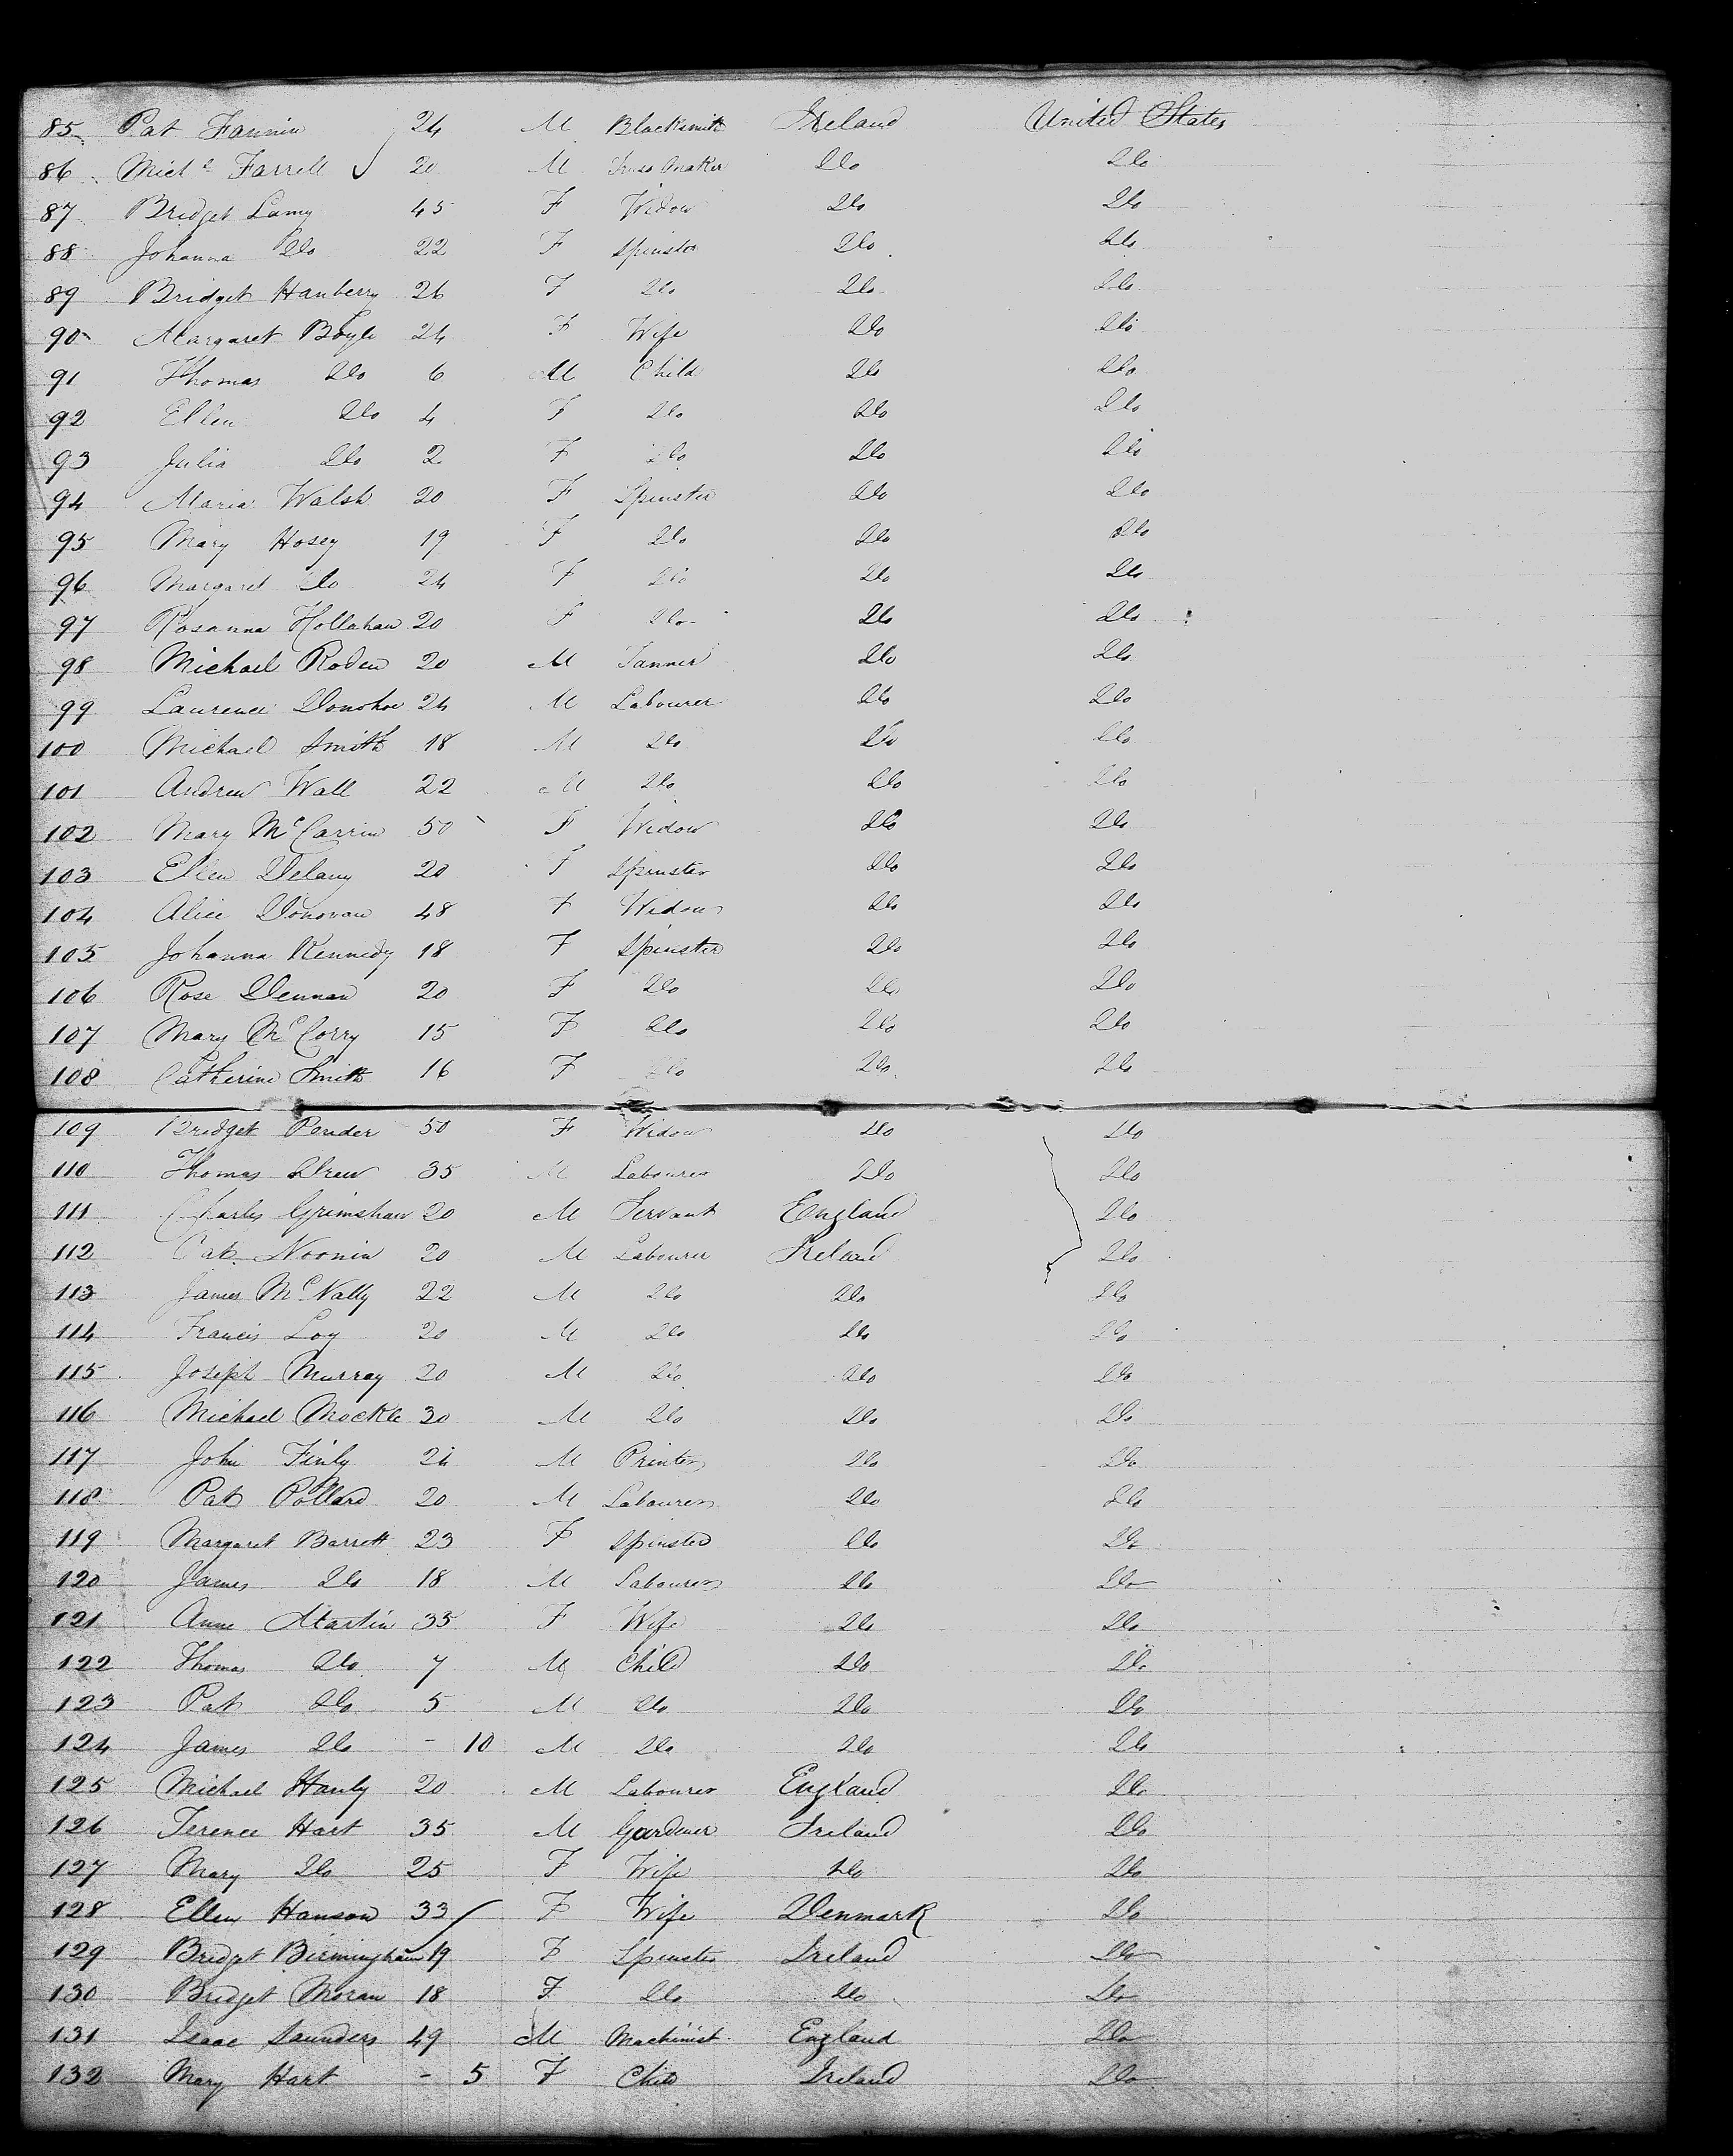 85 Pat Fannin 24 M Blacksmith Ireland United States
86 Michl Farrell 20 M Do Do
87 Bridget Lamy 45 F Widow Do Do
88 Johanna Do 22 F Spinster Do Do
89 Bridget Hanberry 26 F Do Do Do
90 Margaret Boyle 24 F Wife Do Do
91 Thomas Do 6 M Child Do Do
92 Ellen Do 4 F Do Do Do
93 Julia Do 2 F Do Do Do
94 Maria Walsh 20 F Spinster Do Do
95 Mary Hosey 19 F Do Do Do
96 Margaret Do 24 F Do Do Do
97 Rosanna Hollahan 20 F Do Do Do
98 Michael Roden 20 M Tanner Do Do
99 Laurence Donohoe 24 M Labourer Do Do
100 Michael Smith 18 M Do Do Do
101 Andrew Wall 22 M Do Do Do
102 Mary McCarrin 50 F Widow Do Do
103 Ellen Delany 20 F Spinster Do Do
104 Alice Donovan 48 F Widow Do Do
105 Johanna Kennedy 18 F Spinster Do Do
106 Rose Dennan 20 F Do Do Do
107 Mary McCorry 15 F Do Do Do
108 Catherine Smith 16 F Do Do Do
109 Bridget Pender 50 F Widow Do Do
110 Thomas Drew 35 M Labourer Do Do
111 Charles Grimshaw 20 M Servant England Do
112 Pat Noonin 20 M Labourer Ireland Do
113 James McNally 22 M Do Do Do
114 Francis Loy 20 M Do Do Do
115 Joseph Murray 20 M Do Do Do
116 Michael Mockle 30 M Do Do Do
117 John Finly 24 M Printer Do Do
118 Pat Pollard 20 M Labourer Do Do
119 Margaret Barrett 23 F Spinster Do Do
120 James Do 18 M Labourer Do Do
121 Anne Martin 35 F Wife Do Do
122 Thomas Do 7 M Child Do Do
123 Pat Do 5 M Do Do Do
124 James Do - 10 M Do Do Do
125 Michael Hanly 20 M Labourer England Do
126 Terence Hart 35 M Gardener Ireland Do
127 Mary Do 25 F Wife Do Do
128 Ellen Hanson 33 F Wife Denmark Do
129 Bridget Birmingham 19 F Spinster Ireland Do
130 Bridget Moran 18 F Do Do Do
131 Isaac Saunders 49 M Machinist England Do
132 Mary Hart - 5 F Child Ireland Do